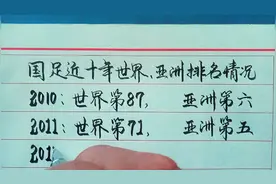 国足近十年世界、亚洲排名情况
2010：世界第87，亚洲第六
2011：世界第71，亚洲第五
201